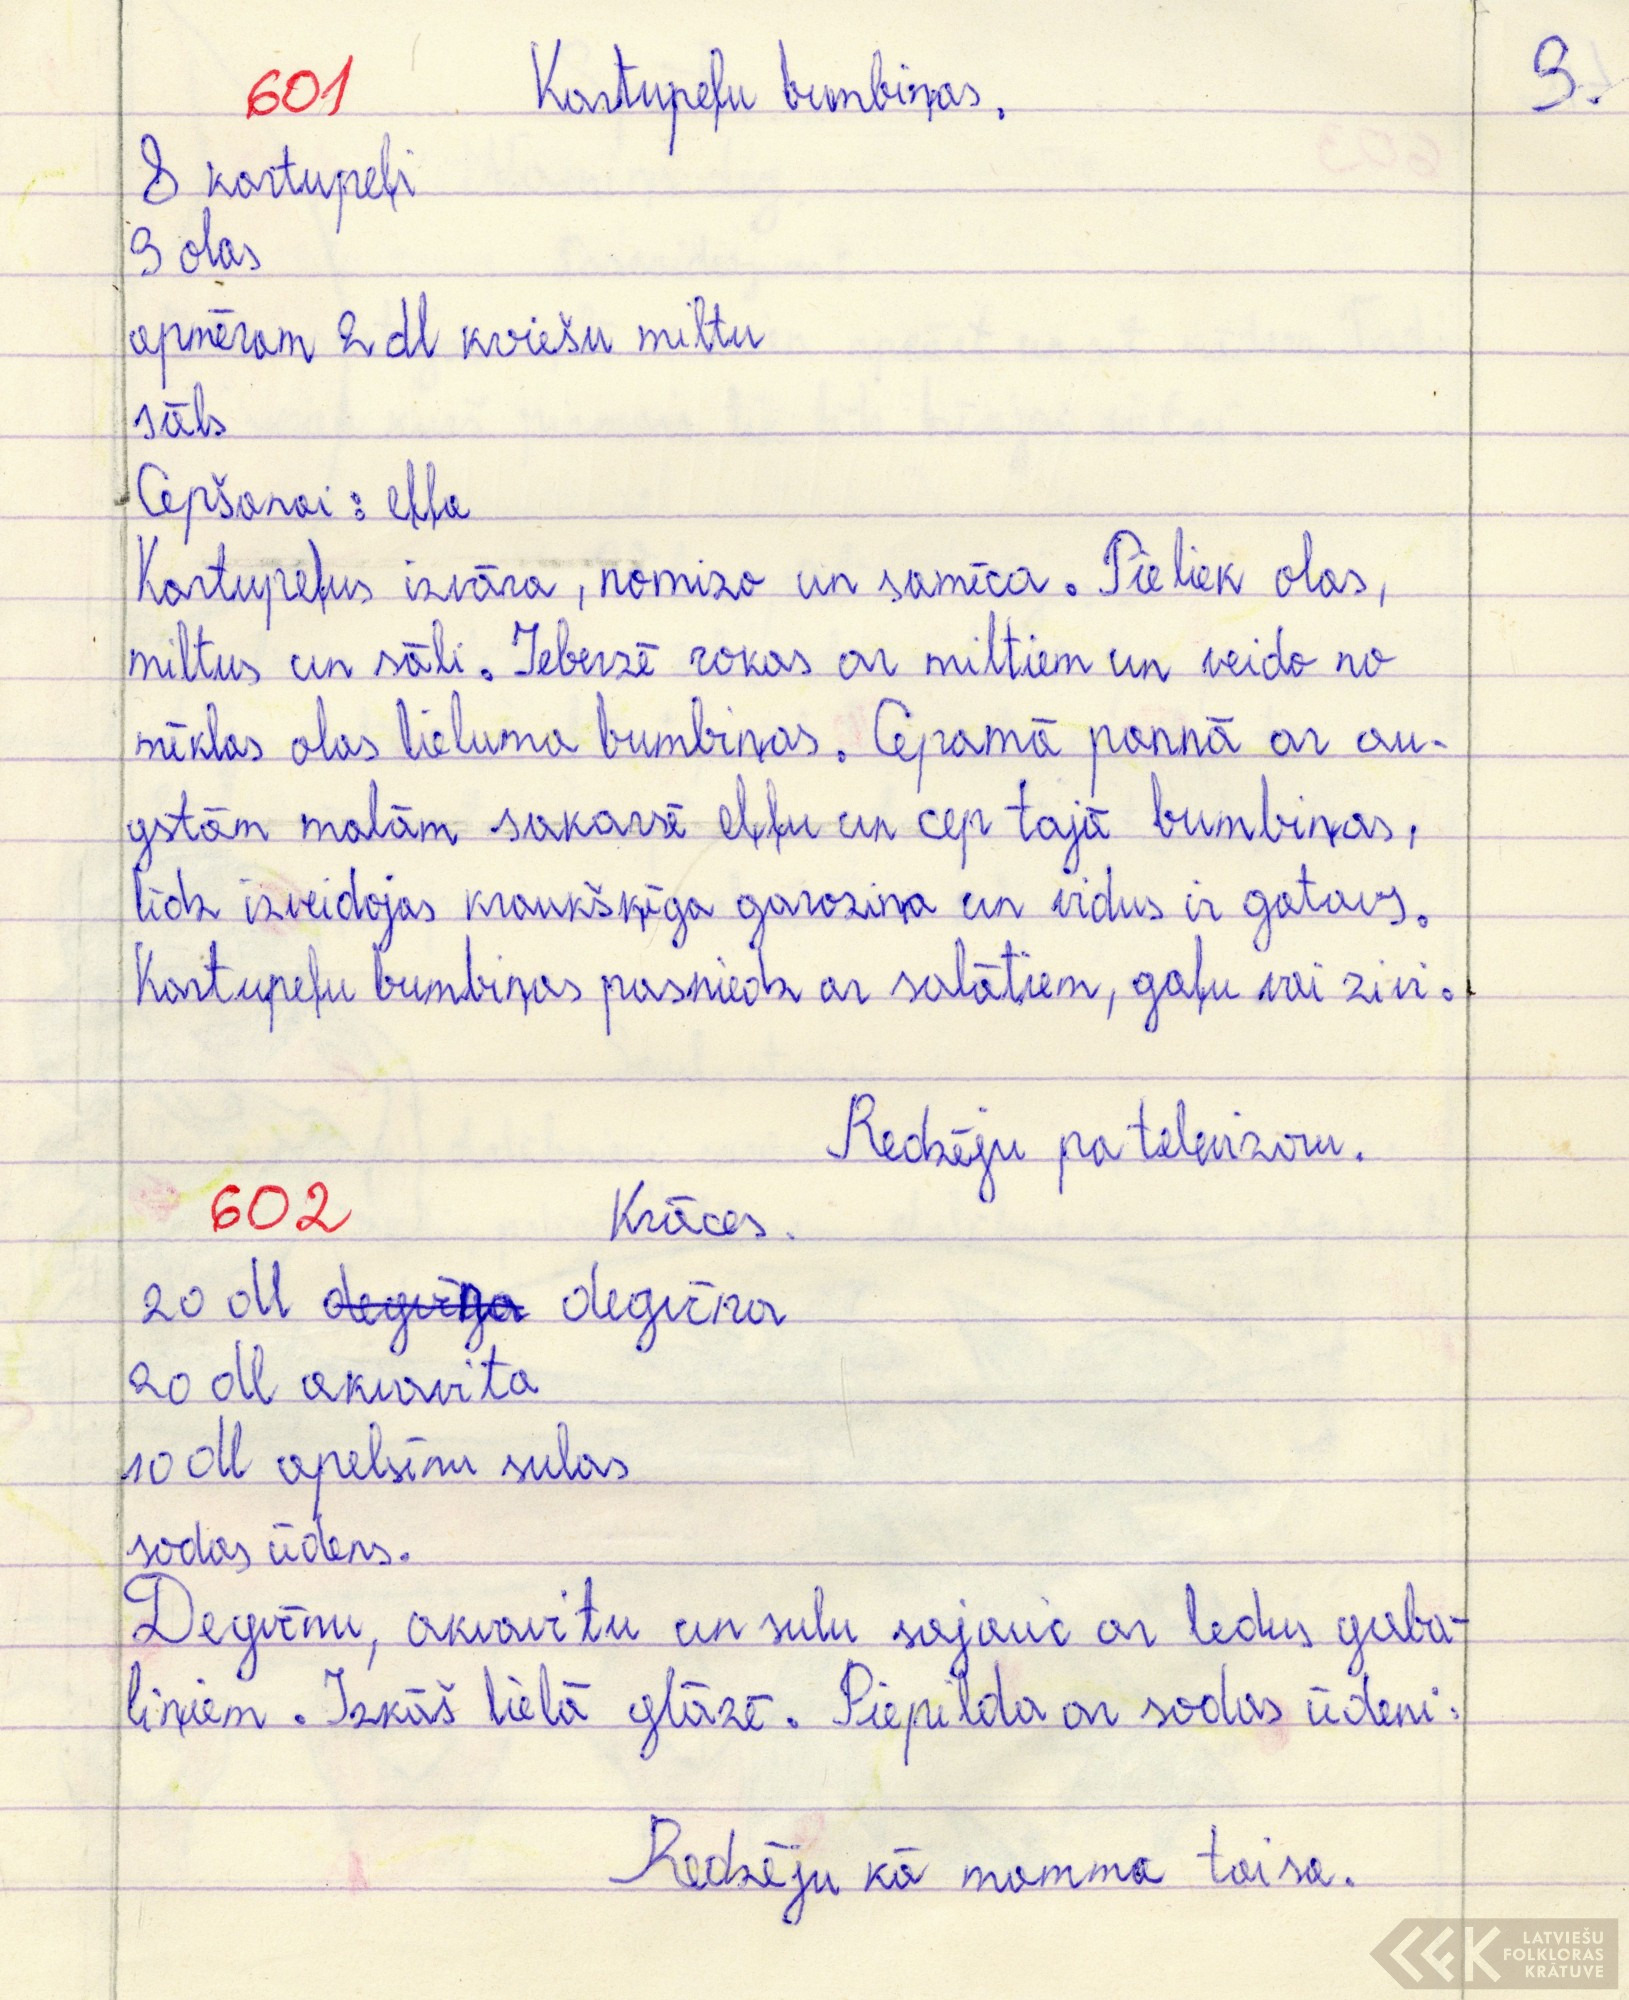 601 Kartupeļu bumbiņas. 3.
8 kartupeļi
3 olas
apmēram 2 dl kviešu miltu
sāls
Cepšanai: eļļa
Kartupeļus izvāra, nomizo un samīca. Pieliek olas,
miltus un sāli. Ieberzē rokas ar miltiem un veido no
mīklas olas lieluma bumbiņas. Cepamā pannā ar au-
gstām malām sakarsē eļļu un cep tajā bumbiņas,
līdz izveidojas kraukšķīga garoziņa un vidus ir gatavs.
Kartupeļu bumbiņas pasniedz ar salātiem, gaļu vai zivi.
Redzēju pa televizoru.
602 Krāces.
20 dl degviņa degvīna
20 dl akvavita
10 dl apelsīnu sulas
sodas ūdens.
Degvīnu, akvavitu un sulu sajauc ar ledus gaba-
liņiem. Izkāš lielā glāzē. Piepilda ar sodas ūdeni.
Redzēju kā mamma taisa.
LATVIEŠU
FOLKLORAS
KRĀTUVE